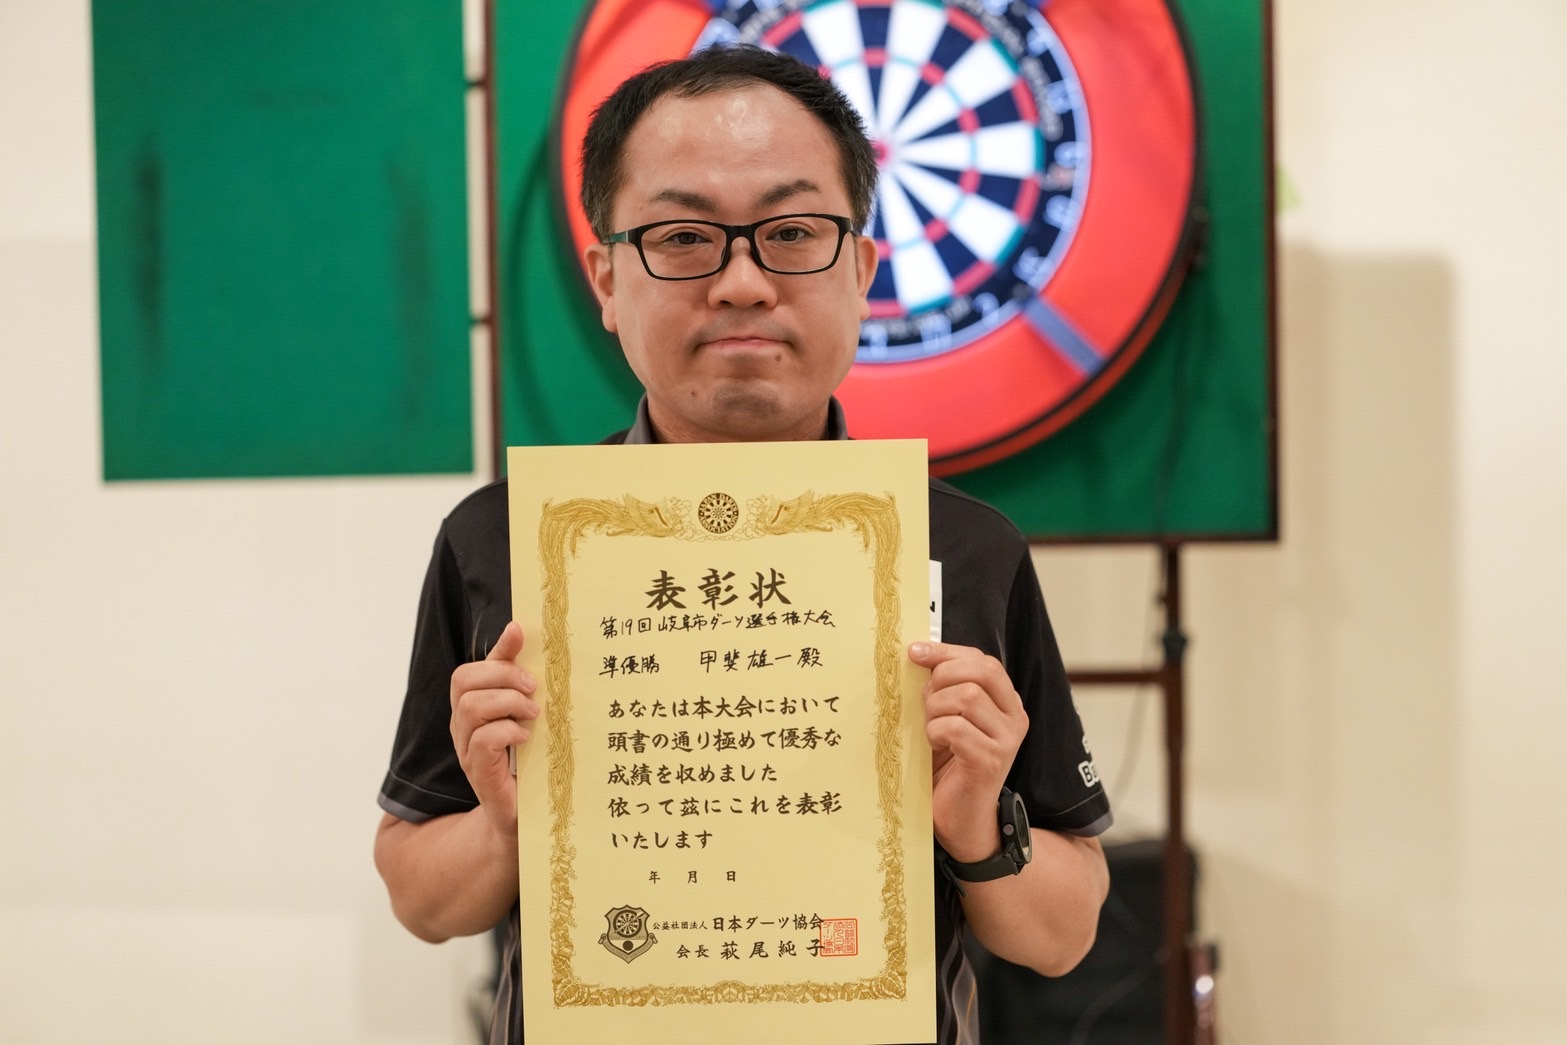 表彰状
第19回岐阜市ダーツ選手権大会
準優勝 甲斐雄一殿
あなたは本大会において
頭書の通り極めて優秀な
成績を収めました
依って茲にこれを表彰
いたします
年 月 日
公益社団法人 日本ダーツ協会
会長 萩尾純子